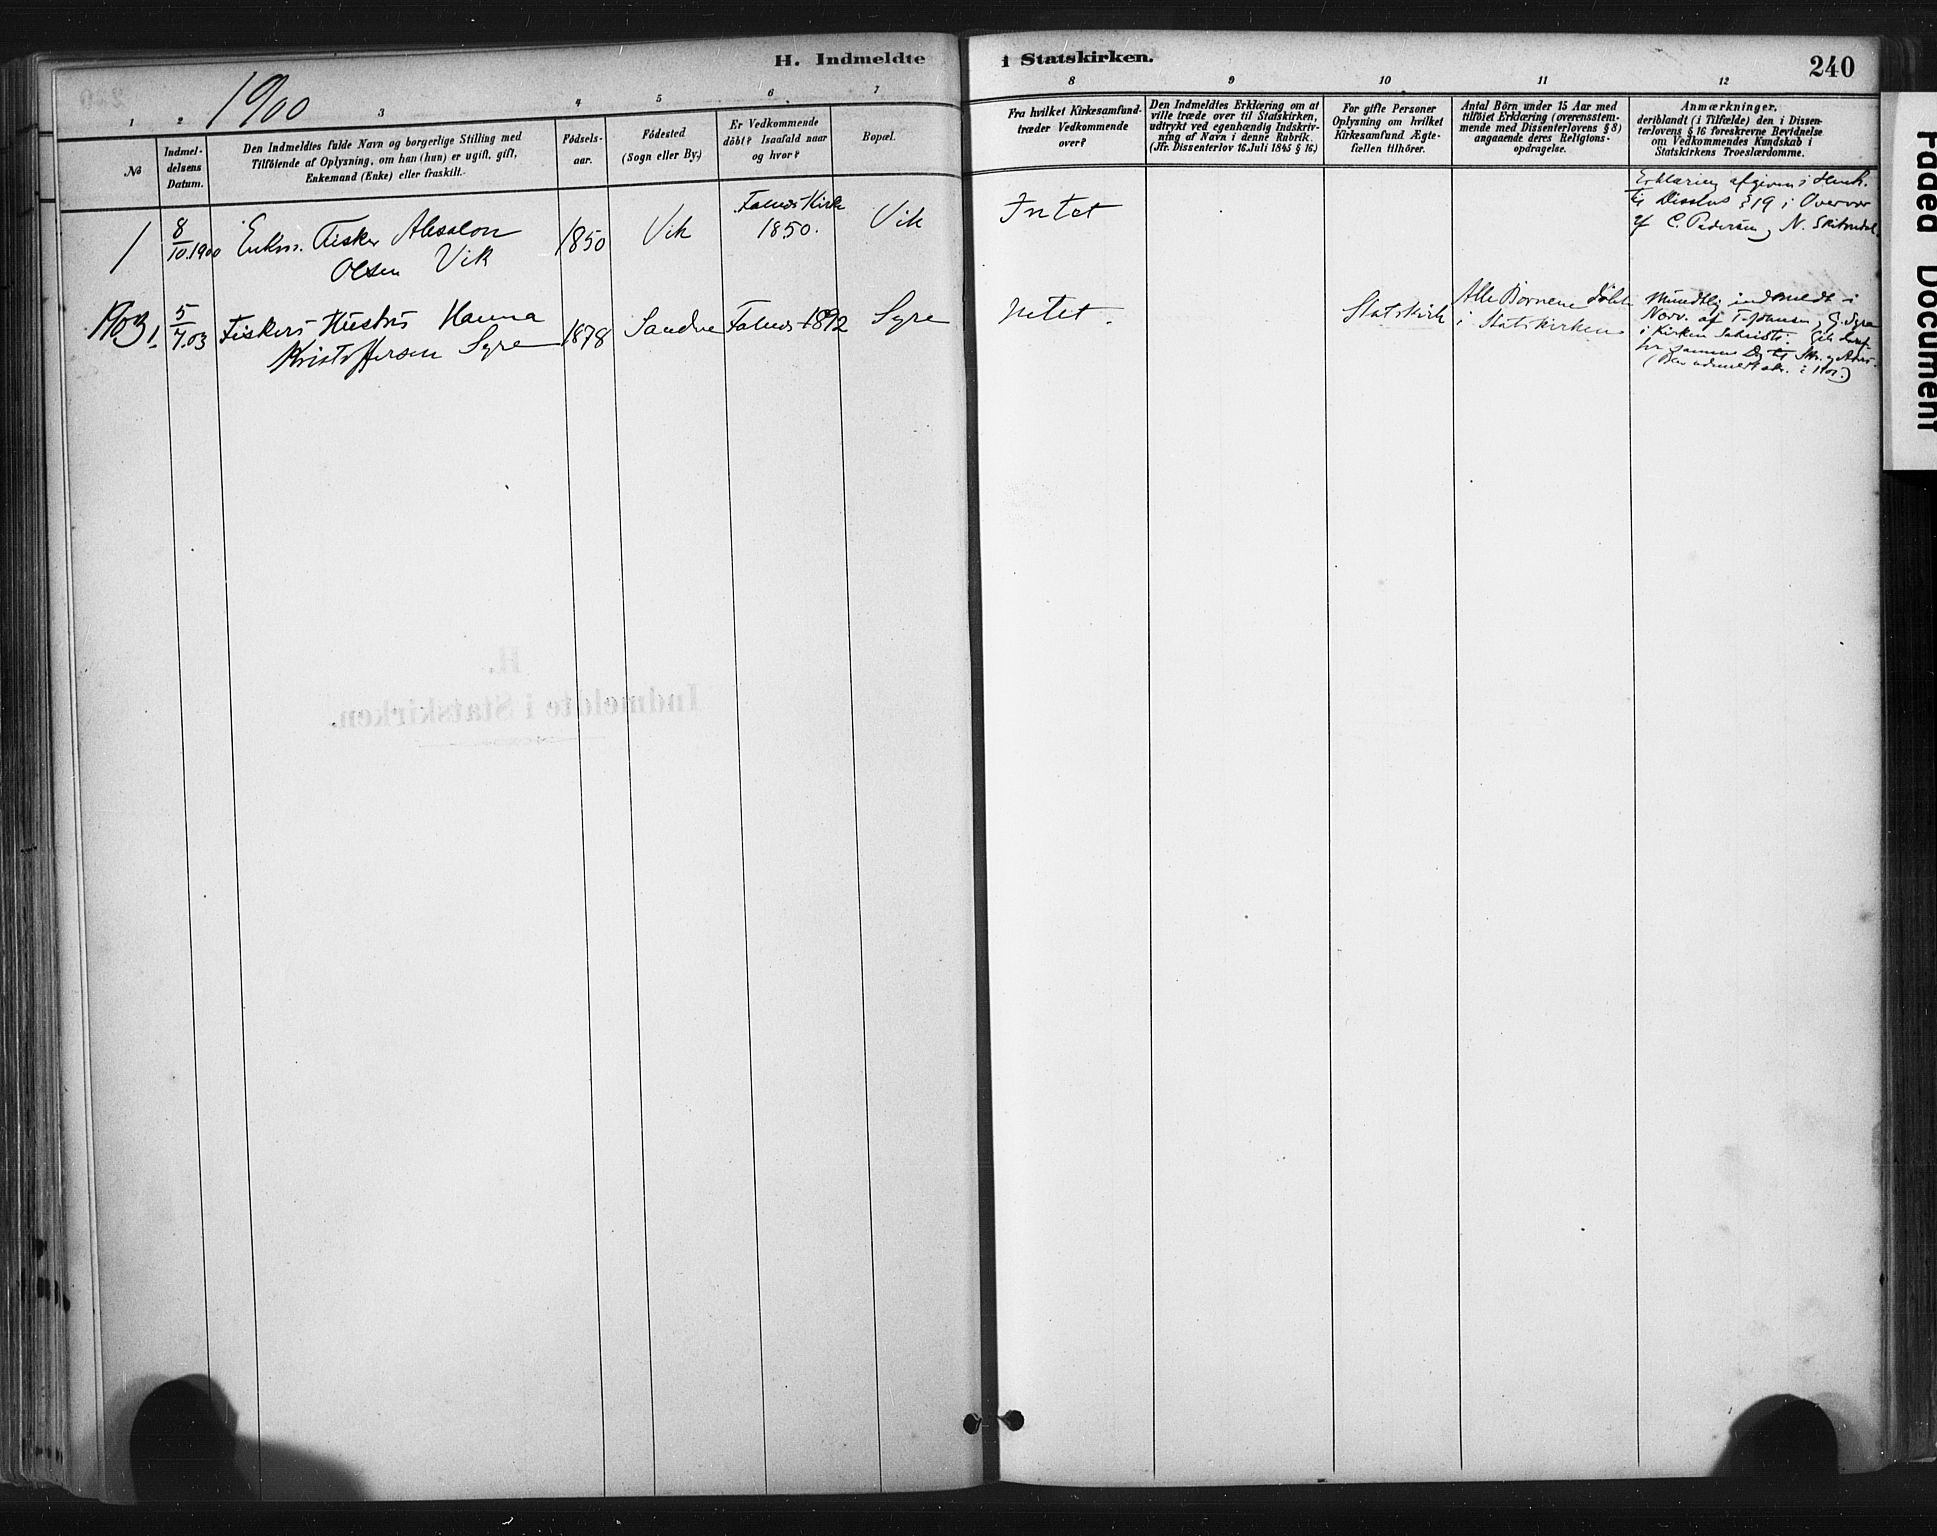 H. Indmeldte i Statskirken.
240
1900
1 2 3 4 5 6 7 8 9 10 11 12
№
Indmel-
delsens
Datum.
Den Indmeldtes fulde Navn og borgerlige Stilling med
Tilföiende af Oplysning, om han (hun) er ugift, gift,
Enkemand (Enke) eller fraskilt.
Födsels-
aar.
Födested
(Sogn eller By.)
Er Vedkommende
döbt? Isaafald naar
og hvor?
Bopæl.
Fra hvilket Kirkesamfund
træder Vedkommende
over?
Den Indmeldtes Erklæring om at
ville træde over til Statskirken,
udtrykt ved egenhændig Indskriv-
ning af Navn i denne Rubrik.
(Jfr. Dissenterlov 16. Juli 1845 § 16.)
For gifte Personer
Oplysning om hvilket
Kirkesamfund Ægte-
fællen tilhörer.
Antal Börn under 15 Aar med
tilföiet Erklæring (overensstem-
mende med Dissenterlovens § 8)
angaaende deres Religions-
opdragelse.
Anmærkninger,
deriblandt (i Tilfælde) den i Dissen-
terlovens § 16 foreskrevne Bevidnelse
om Vedkommendes Kundskab i
Statskirkens Troeslærdomme.
1
8/10.1900
Enkm. Fisker Absalon
Olsen Vik
1850
Vik
Falnes Kirke
1850.
Vik
Intet
Erklæring afgiven i Henh.
til Disslovs § 19 i Overvær
af C. Pedersen og N.
1903 1.
5/7.03
Fiskers Hustru Hanna
Kristoffersen Syre
1878
Sandve
Falnes 1892
Syre
Intet.
Statskirk
Alle Börnene döbt
i Statskirken
Mundtlig indmeldt i
Nærv. af T. Johnsen og G. Syre
i Kirkens Sakristi.
samme Dag til
H.
Indmeldte i Statskirken.
Faded Document